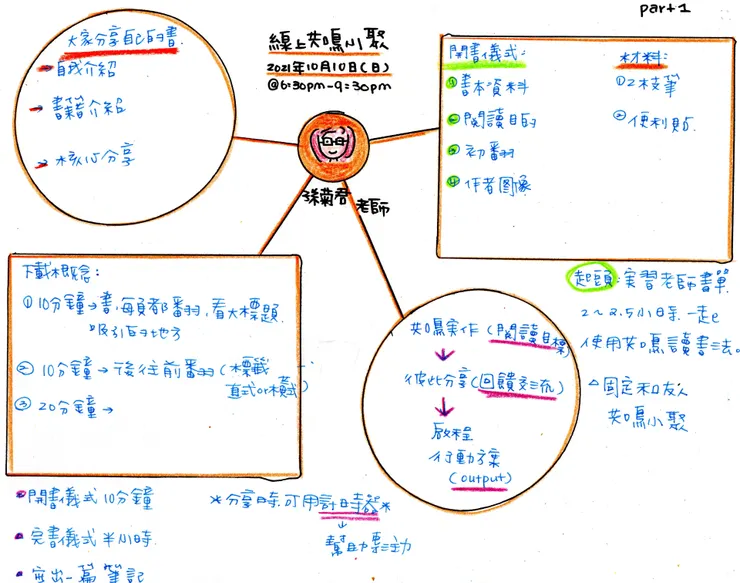 part 1
線上共鳴小聚
2021年10月10日(日)
@6:30pm-9:30pm
孫菊君老師
大家分享自己的書
自我介紹
書籍介紹
核心分享
開書儀式:
①書本資料
②閱讀目的
③初翻
④作者圖像
材料:
①2枝筆
②便利貼
下載概念:
①10分鐘→書,每頁都番羽,看大標題
吸引的地方
②10分鐘→後往前番羽(標籤
直式or橫式)
③20分鐘→
共鳴實作(閱讀目標)
彼此分享(回饋交流)
啟程
行動方案
(output)
起頭:実習老師書單
2~2.5小時一起
使用共鳴讀書法。
△固定和友人
共鳴小聚
開書儀式10分鐘
完書儀式半小時
*分享時,可用計時器*
↓
幫助專注
一篇筆記